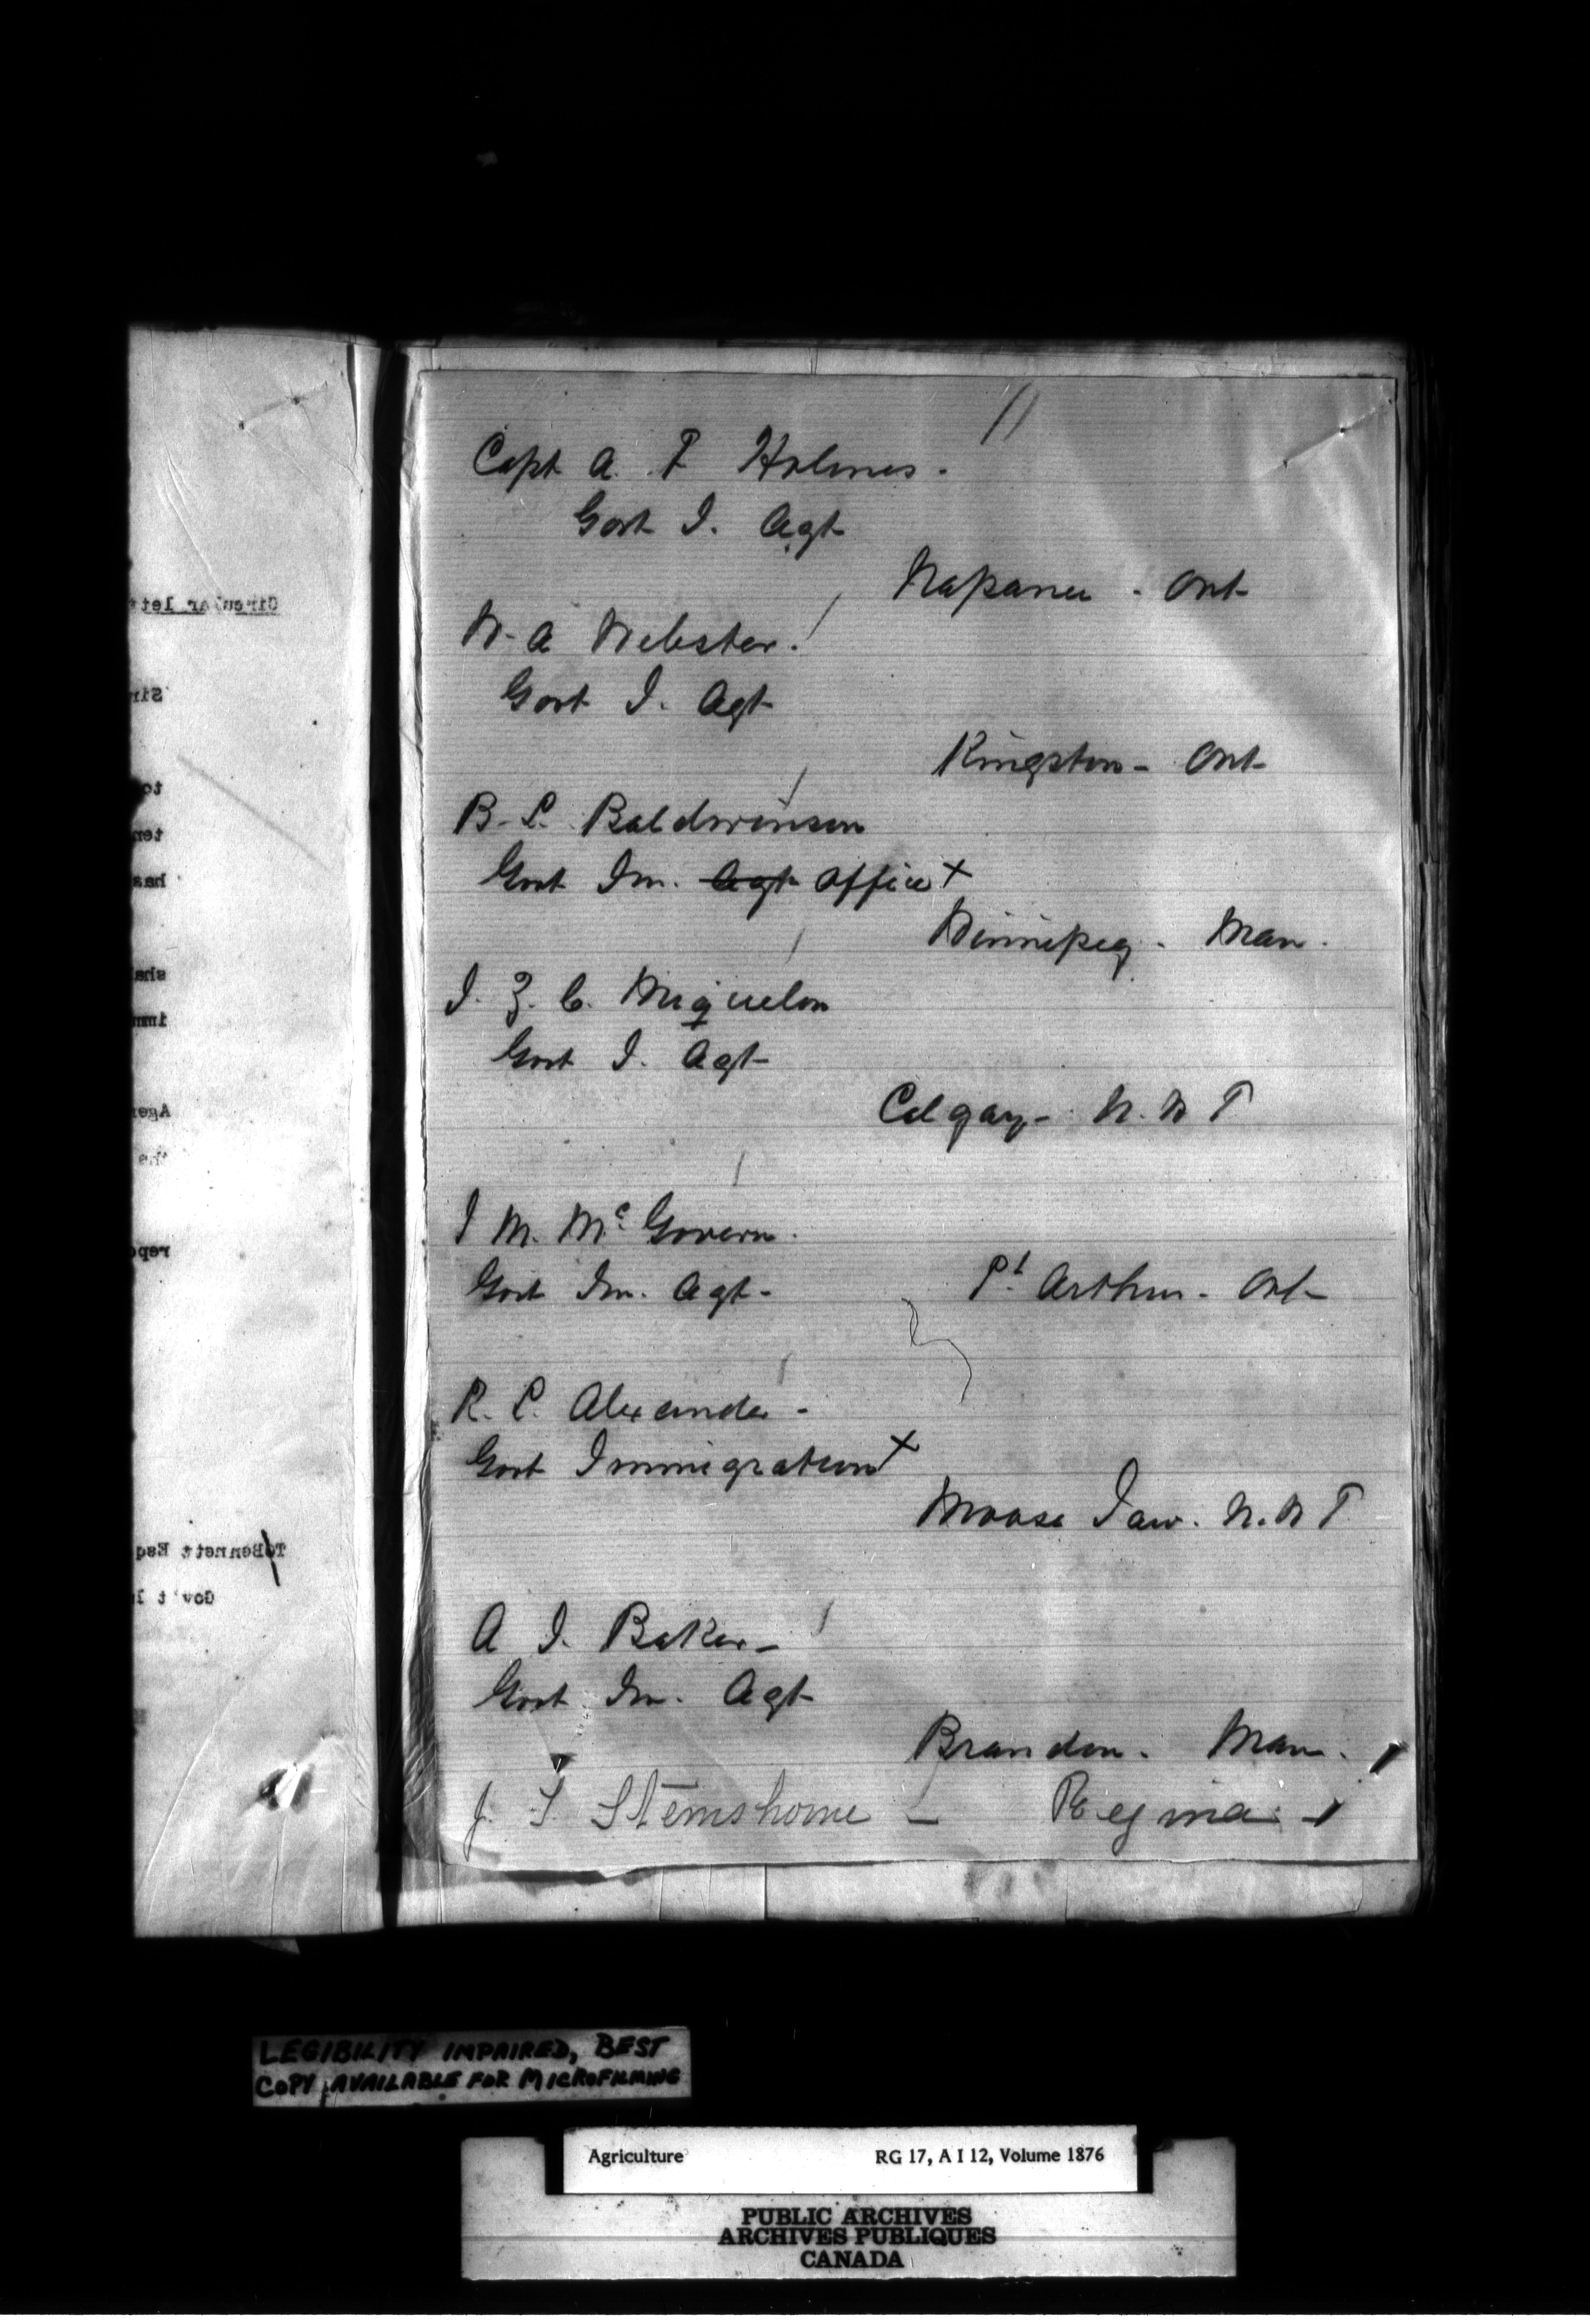 Capt A. T Holmes.
Govt I. Agt
Napanee - Ont
W. A Webster.
Govt I. Agt
Kingston - Ont
B. L. Baldwinson
Govt Im. Agt Office X
Winnipeg - Man.
J. Z. C. Miquelon
Govt I. Agt
Calgary - N. W T
J M. McGovern.
Govt Im. Agt -
Pt Arthur - Ont
R. L. Alexander -
Govt Immigration X
Moose Jaw. N. W T
A J. Baker -
Govt Im. Agt
Brandon. Man.
J. S - Regina -
Circular let
Sir
to
ten
has
sha
imm
Age
the
repo
T Bennett Esq
Gov't I
LEGIBILITY IMPAIRED, BEST
COPY AVAILABLE FOR MICROFILMING
Agriculture RG 17, A I 12, Volume 1876
PUBLIC ARCHIVES
ARCHIVES PUBLIQUES
CANADA